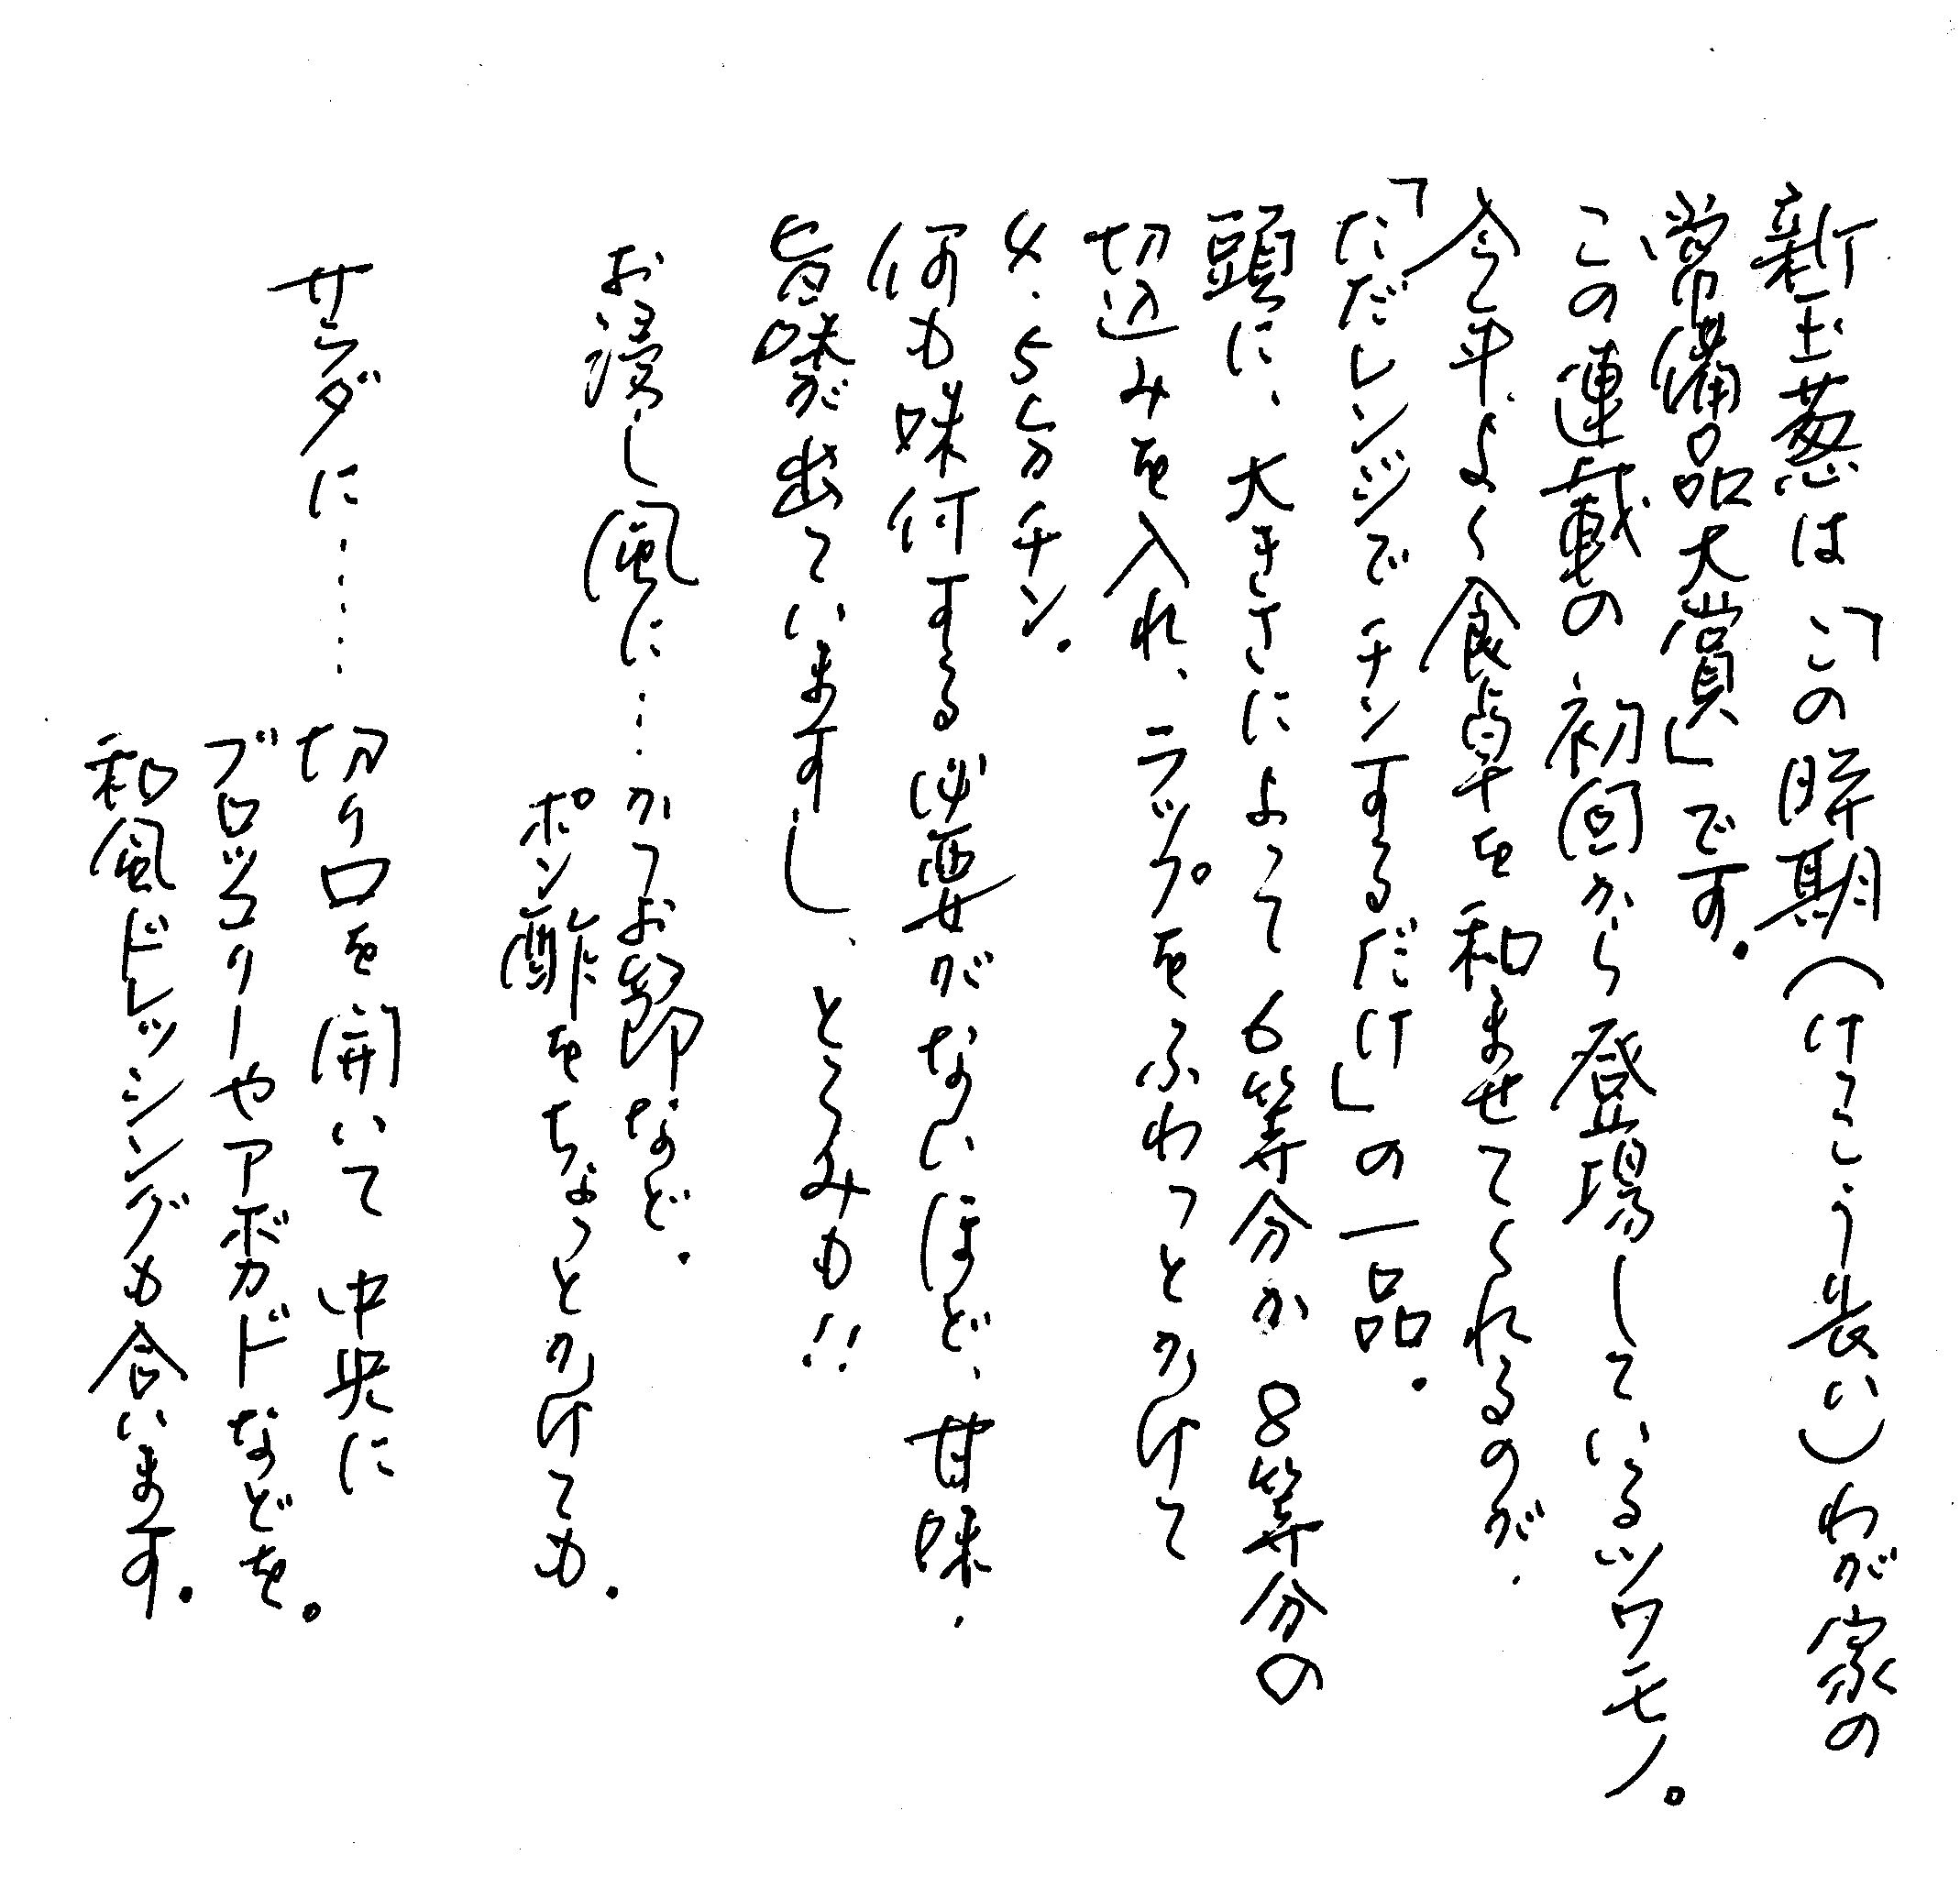 新玉葱は「この時期（けっこう長い）わが家の
常備品大賞」です。
この連載の初回から登場しているツワモノ。
今年よく食卓を和ませてくれるのが、
「ただレンジでチンするだけ」の一品。
頭に、大きさによって6等分か8等分の
切込みを入れ、ラップをふわっとかけて
4、5分チン。
何も味付する必要がないほど、甘味、
旨味が出ていますし、とろみも!!
お浸し風に……かつお節など。
ポン酢をちょっとかけても。
サラダに……切り口を開いて中央に
ブロッコリーやアボカドなどを。
和風ドレッシングも合います。